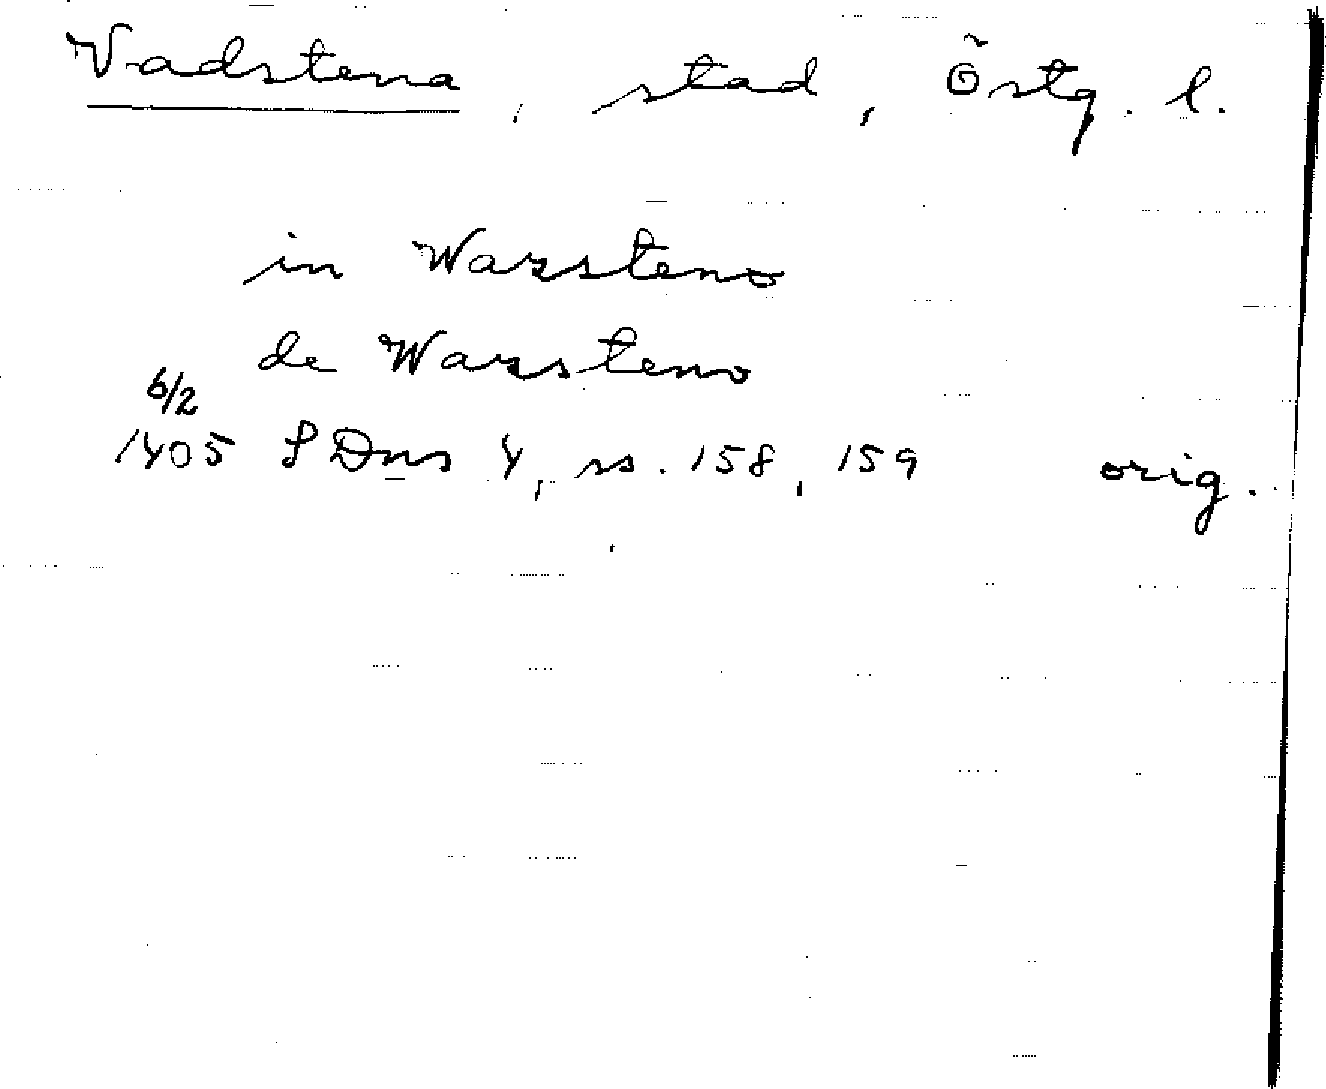 Vadstena, stad, Östg. l.
in Warssteno
de Warssteno
6/2
1405 SDns 4, ss. 158, 159 orig.